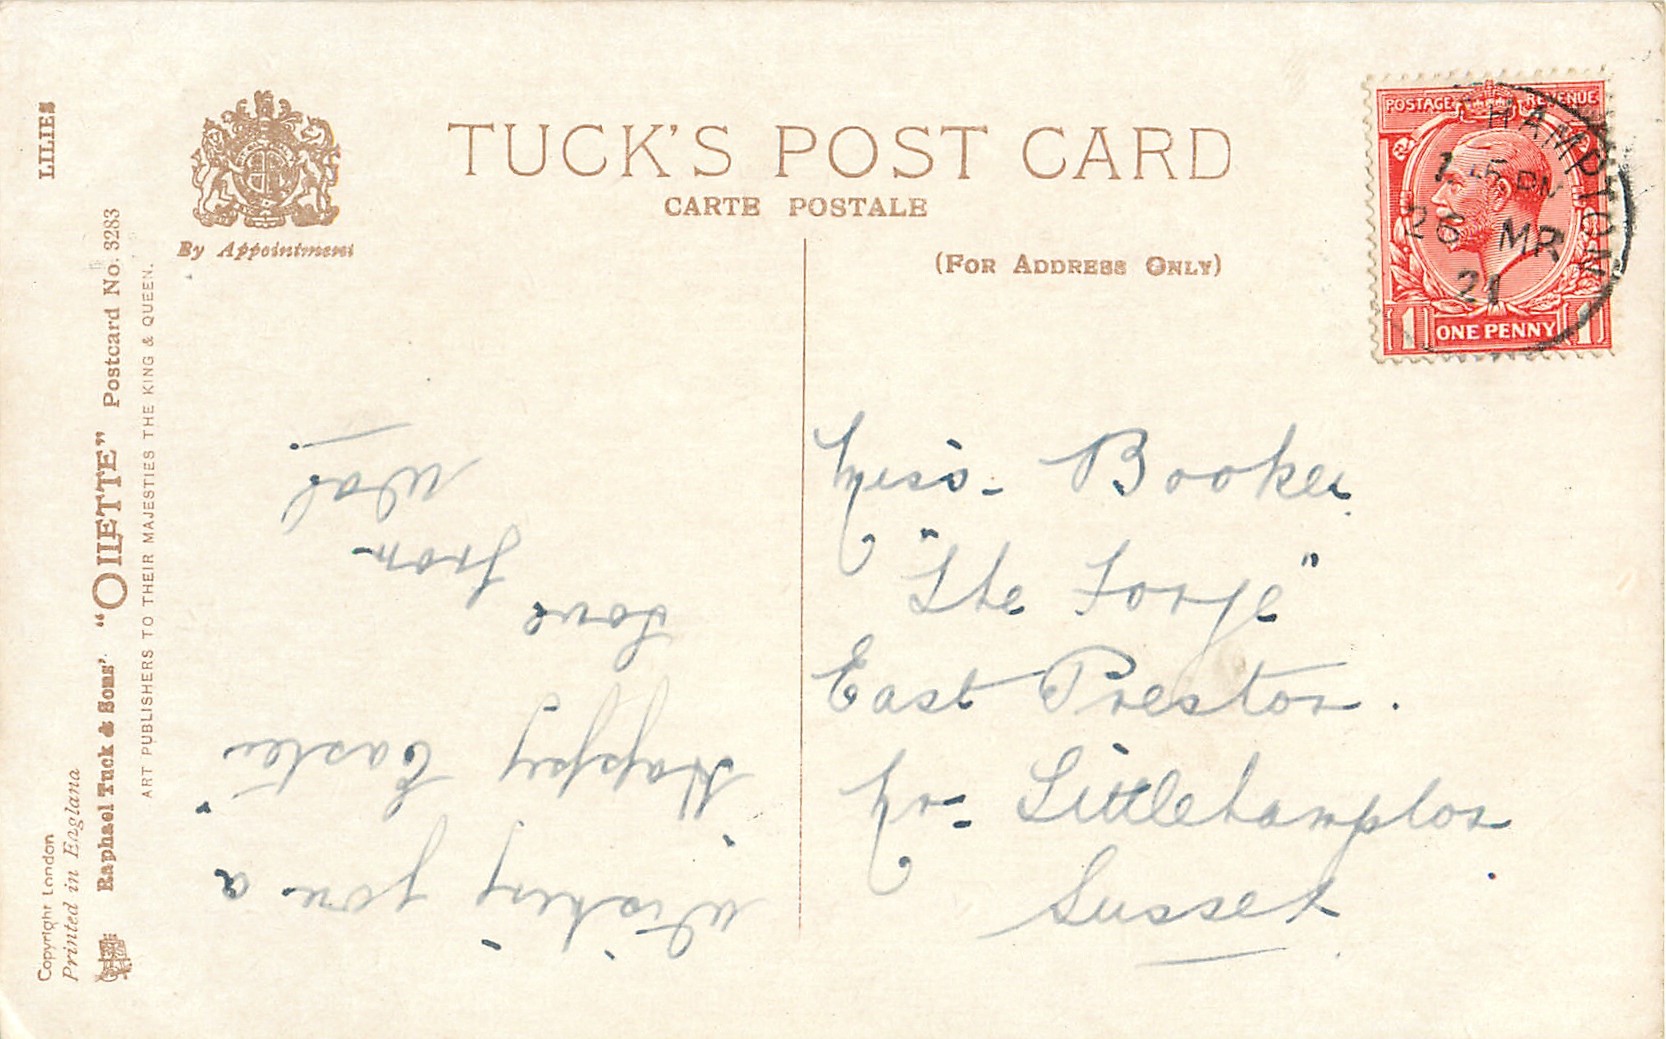 LILIES
Copyright London
Printed in England
Raphael Tuck & Sons' "OILETTE" Postcard No. 3283
ART PUBLISHERS TO THEIR MAJESTIES THE KING & QUEEN.
By Appointment
TUCK'S POST CARD
CARTE POSTALE
(FOR ADDRESS ONLY)
POSTAGE REVENUE
1 ONE PENNY 1
HAMPTON
PM
26 MR
21
Wishing you a
Happy Easter
Love
from
Wal.
Miss. Booker
"The Forge"
East Preston.
Nr. Littlehampton
Sussex